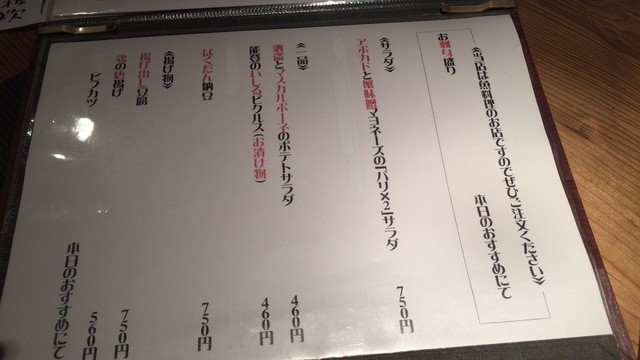 《当店は魚料理のお店ですのでぜひご注文ください》
お刺身盛り 本日のおすすめにて
《サラダ》
アボカドと蟹味噌マヨネーズの「パリ×2」サラダ 750円
《一品》
酒盗とマスカルポーネのポテトサラダ 460円
能登のいしるピクルス(お漬け物) 460円
ばくだん納豆 750円
《揚げ物》
揚げ出し豆腐 750円
鶏の唐揚げ 560円
本日のおすすめにて